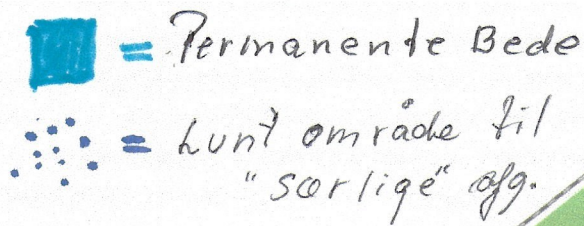 = Permanente Bede
= Lunt område til
"særlige" afg.